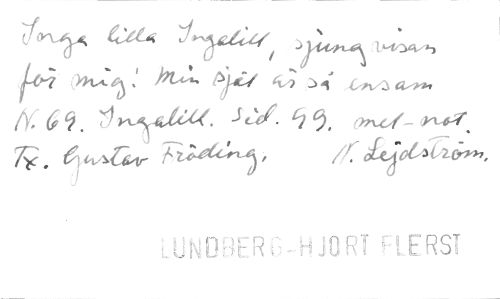 Inga lilla Ingalill, sjung visan
för mig! Min själ är så ensam
N. 69. Ingalill. Sid. 99. mel-not.
Tx. Gustav Fröding. N. Lejdström.
LUNDBERG-HJORT FLERST